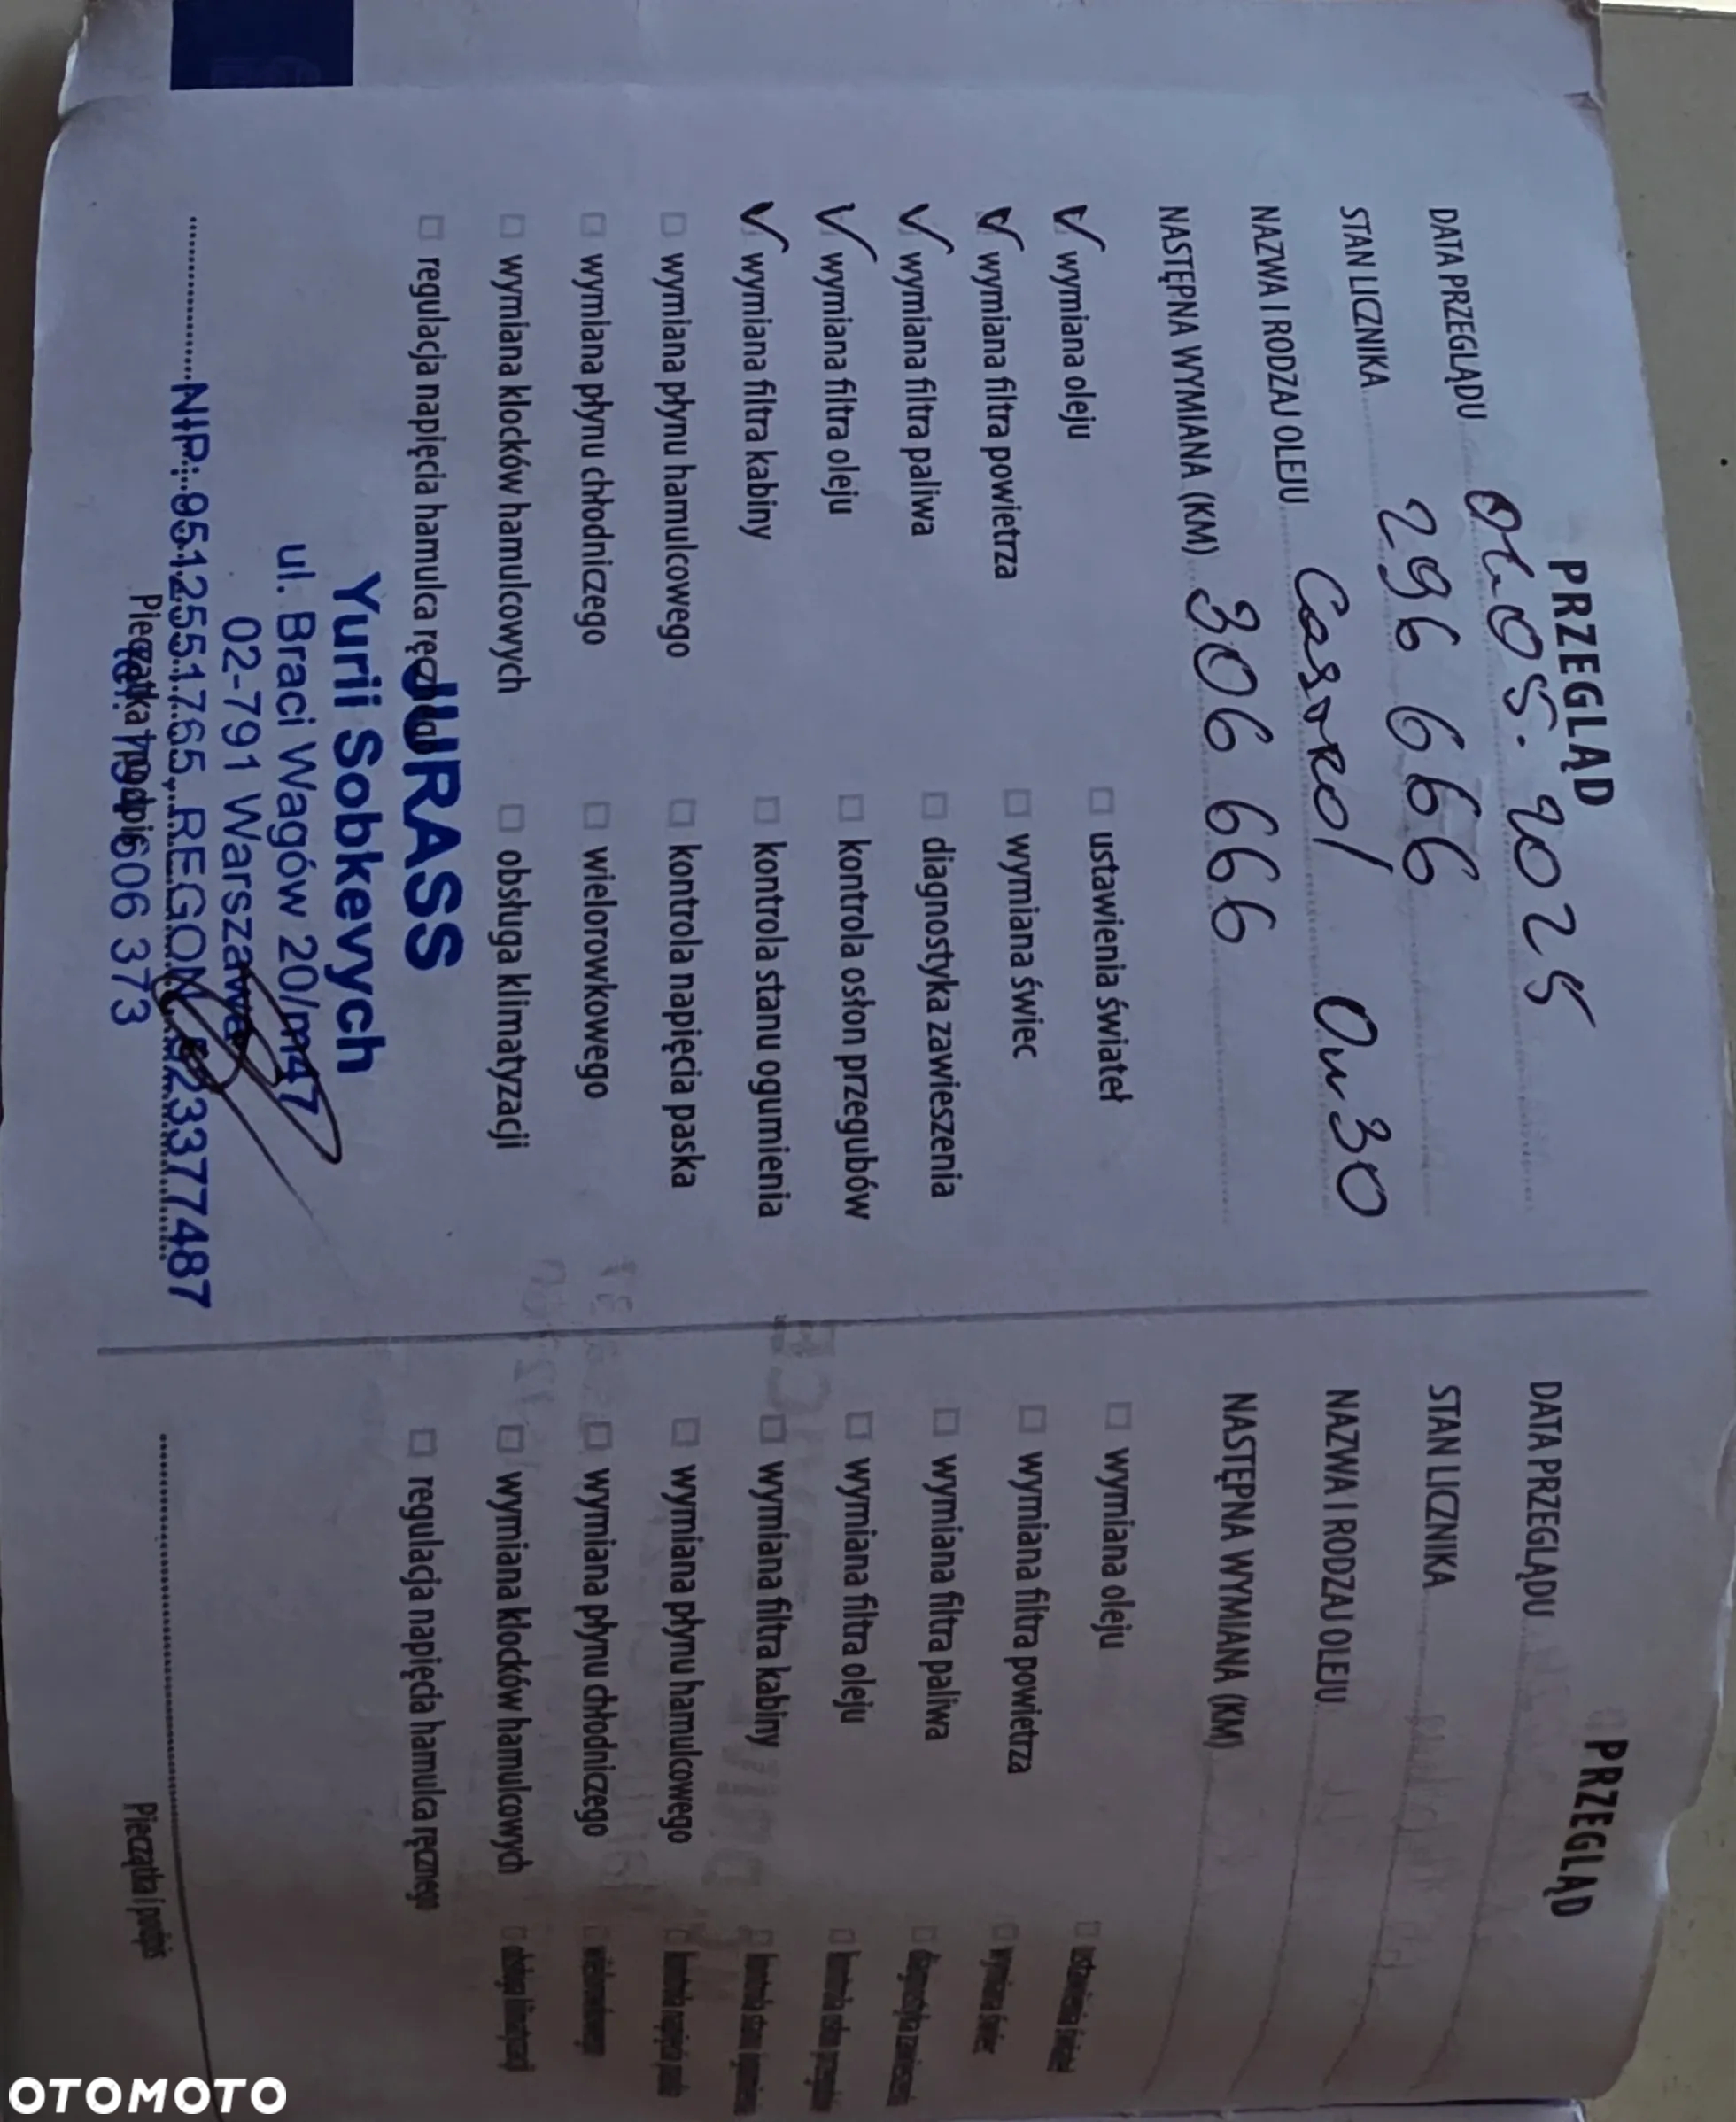 PRZEGLĄD
DATA PRZEGLĄDU 05. 2025
STAN LICZNIKA 296 666
NAZWA I RODZAJ OLEJU Castrol 0w30
NASTĘPNA WYMIANA (KM) 306 666
✓ wymiana oleju □ ustawienia świateł
✓ wymiana filtra powietrza □ wymiana świec
✓ wymiana filtra paliwa □ diagnostyka zawieszenia
✓ wymiana filtra oleju □ kontrola osłon przegubów
✓ wymiana filtra kabiny □ kontrola stanu ogumienia
□ wymiana płynu hamulcowego □ kontrola napięcia paska
□ wymiana płynu chłodniczego □ wielorowkowego
□ wymiana klocków hamulcowych □ obsługa klimatyzacji
□ regulacja napięcia hamulca ręcznego
JURASS
Yurii Sobkevych
ul. Braci Wagów 20/m47
02-791 Warszawa
NIP: 9512551765, REGON 523377487
606 373
Pieczątka i podpis
PRZEGLĄD
DATA PRZEGLĄDU
STAN LICZNIKA
NAZWA I RODZAJ OLEJU
NASTĘPNA WYMIANA (KM)
□ wymiana oleju □ ustawienia świateł
□ wymiana filtra powietrza □ wymiana świec
□ wymiana filtra paliwa □ diagnostyka zawieszenia
□ wymiana filtra oleju □ kontrola osłon przegubów
□ wymiana filtra kabiny □ kontrola stanu ogumienia
□ wymiana płynu hamulcowego □ kontrola napięcia paska
□ wymiana płynu chłodniczego □ wielorowkowego
□ wymiana klocków hamulcowych □ obsługa klimatyzacji
□ regulacja napięcia hamulca ręcznego
Pieczątka i podpis
OTOMOTO